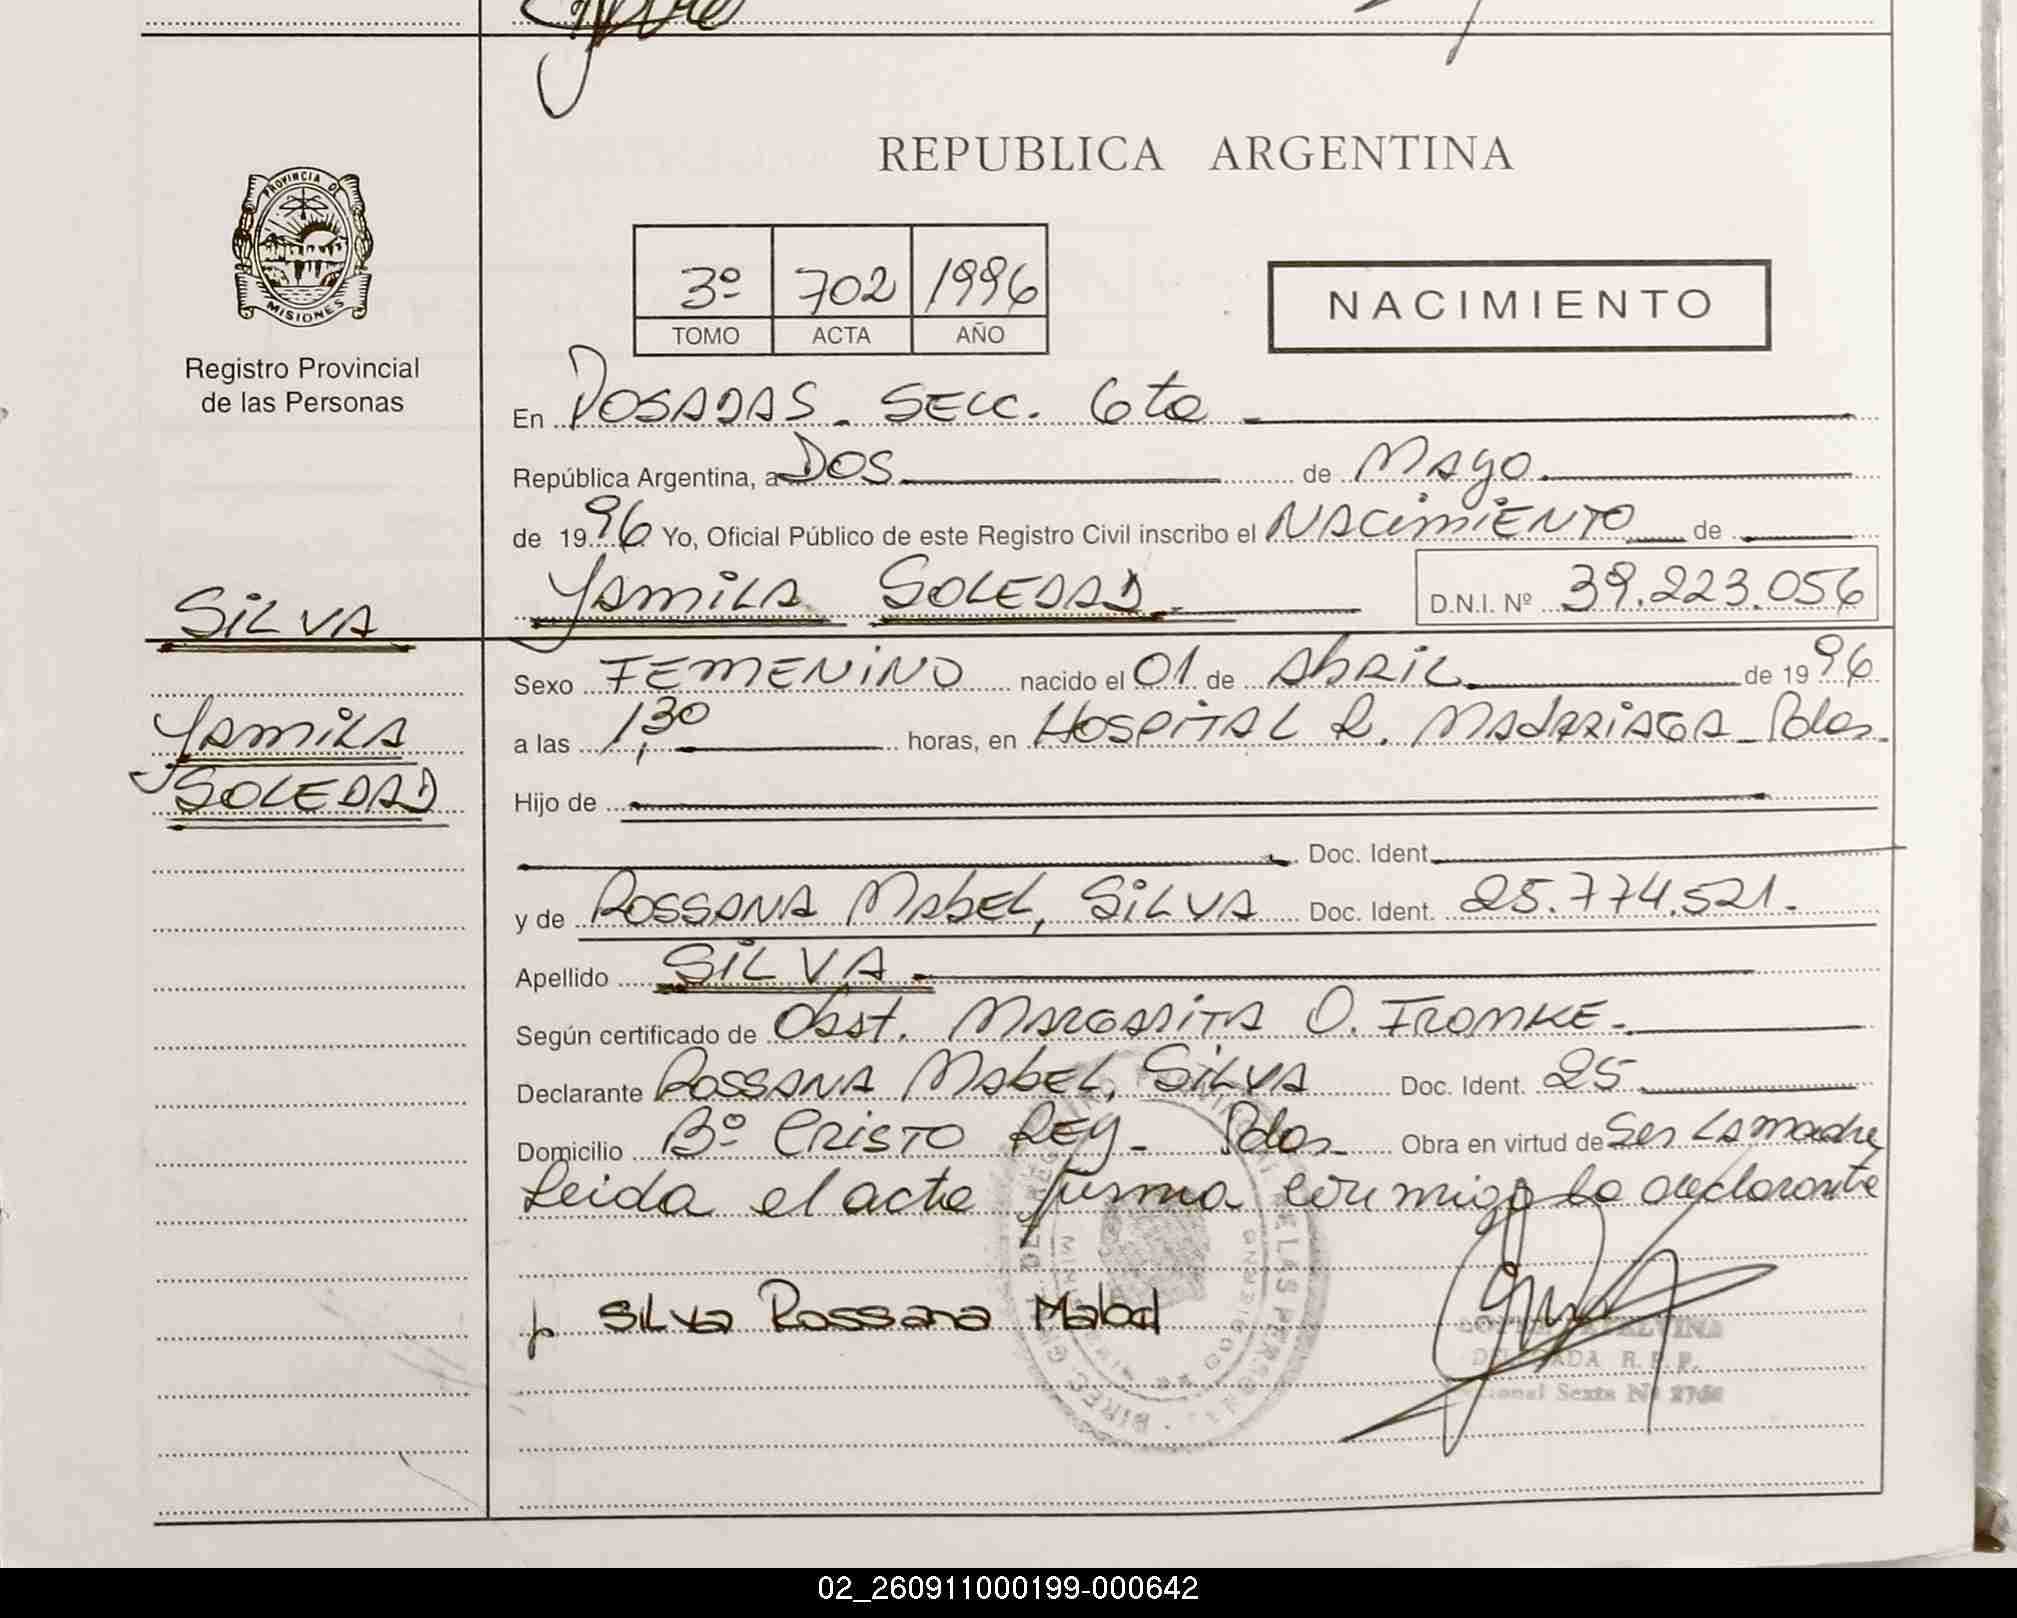 PROVINCIA DE
MISIONES
Registro Provincial
de las Personas
REPUBLICA ARGENTINA
3º 702 1996
TOMO ACTA AÑO
NACIMIENTO
En POSADAS - SECC. 6ta
República Argentina, a DOS de MAYO
de 1996 Yo, Oficial Público de este Registro Civil inscribo el NACIMIENTO de
YAMILA SOLEDAD D.N.I. Nº 39.223.056
SILVA
YAMILA
SOLEDAD
Sexo FEMENINO nacido el 01 de ABRIL de 1996
a las 1,30 horas, en HOSPITAL R. MADARIAGA - Pdas.
Hijo de
Doc. Ident.
y de ROSSANA MABEL, SILVA Doc. Ident. 25.774.521.
Apellido SILVA
Según certificado de Obst. MARGARITA O. FROMKE.
Declarante ROSSANA MABEL, SILVA Doc. Ident. 25
Domicilio Bº CRISTO REY - Pdas. Obra en virtud de Ser la madre
Leida el acta firma conmigo la declarante
Silva Rossana Mabel
DELEGADA R.P.P.
Sexta Nº
02_260911000199-000642